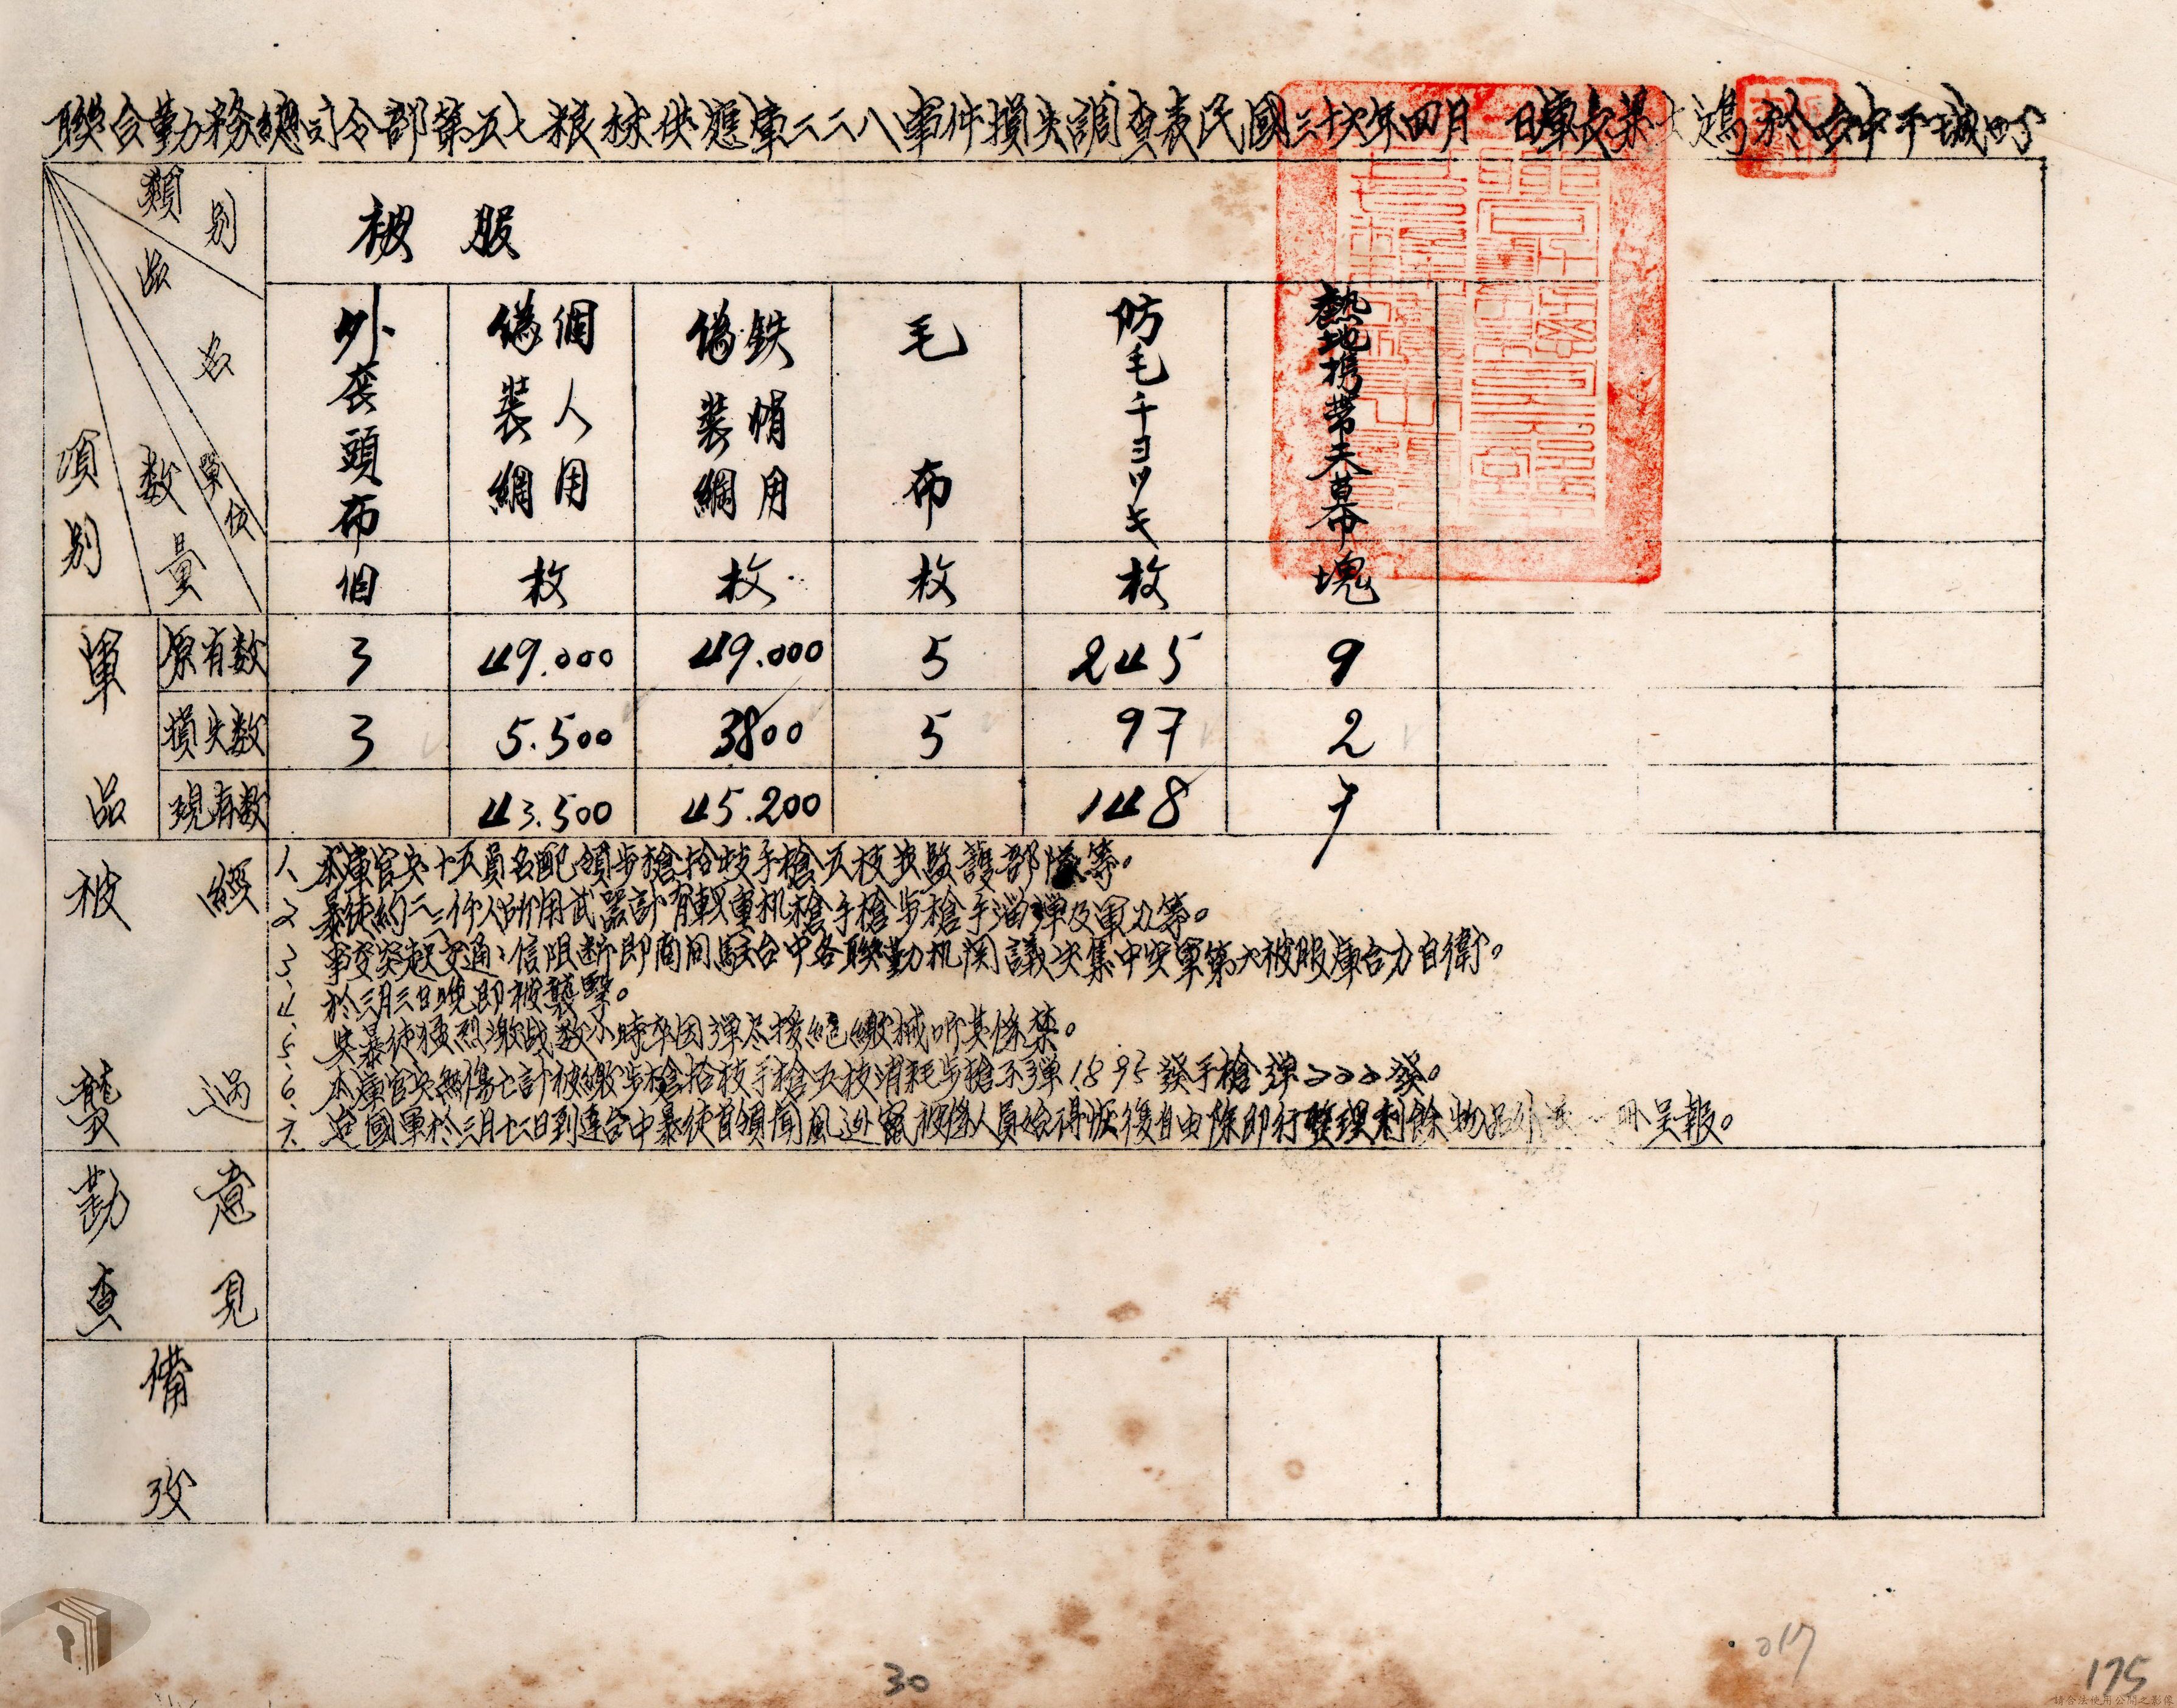 聯合勤務總司令部第五七粮秣供應庫二二八事件損失調查表民國三十六年四月 日庫長葉 鴻 於台中干城町
類別
品名
單位
數量
項別
被服
外套頭布
個人用偽裝網
鉄帽用偽裝網
毛布
防毛チヨツキ
熱地携帶天幕
個 枚 枚 枚 枚 塊
軍品
原有数 3 49.000 49.000 5 245 9
損失数 3 5.500 3800 5 97 2
現有数 43.500 45.200 148 7
被襲經過
1、本庫官兵十五員名配領步槍拾枝手槍五枝 監護部隊等。
2、暴徒約二三仟人所用武器計有輕重机槍手槍步槍手溜彈及軍刀等。
3、事变突起交通、信阻断即商同駐台中各聯勤机関議决集中空軍第六被服庫合力自衛。
4、於三月三日晚即被襲擊。
5、與暴徒猛烈激战数小時卒因彈尽援絕繳械听其係禁。
6、本庫官兵無傷亡計被繳步槍拾枝手槍五枝消耗步槍子彈1895發手槍彈 發。
六、迨國軍於三月十三日到達台中暴徒首領聞風逃竄被係人員始得恢復自由除即行整理剩餘物品外 冊呈報。
勘查意見
備攷
30
217
175
請合法使用公開之影像